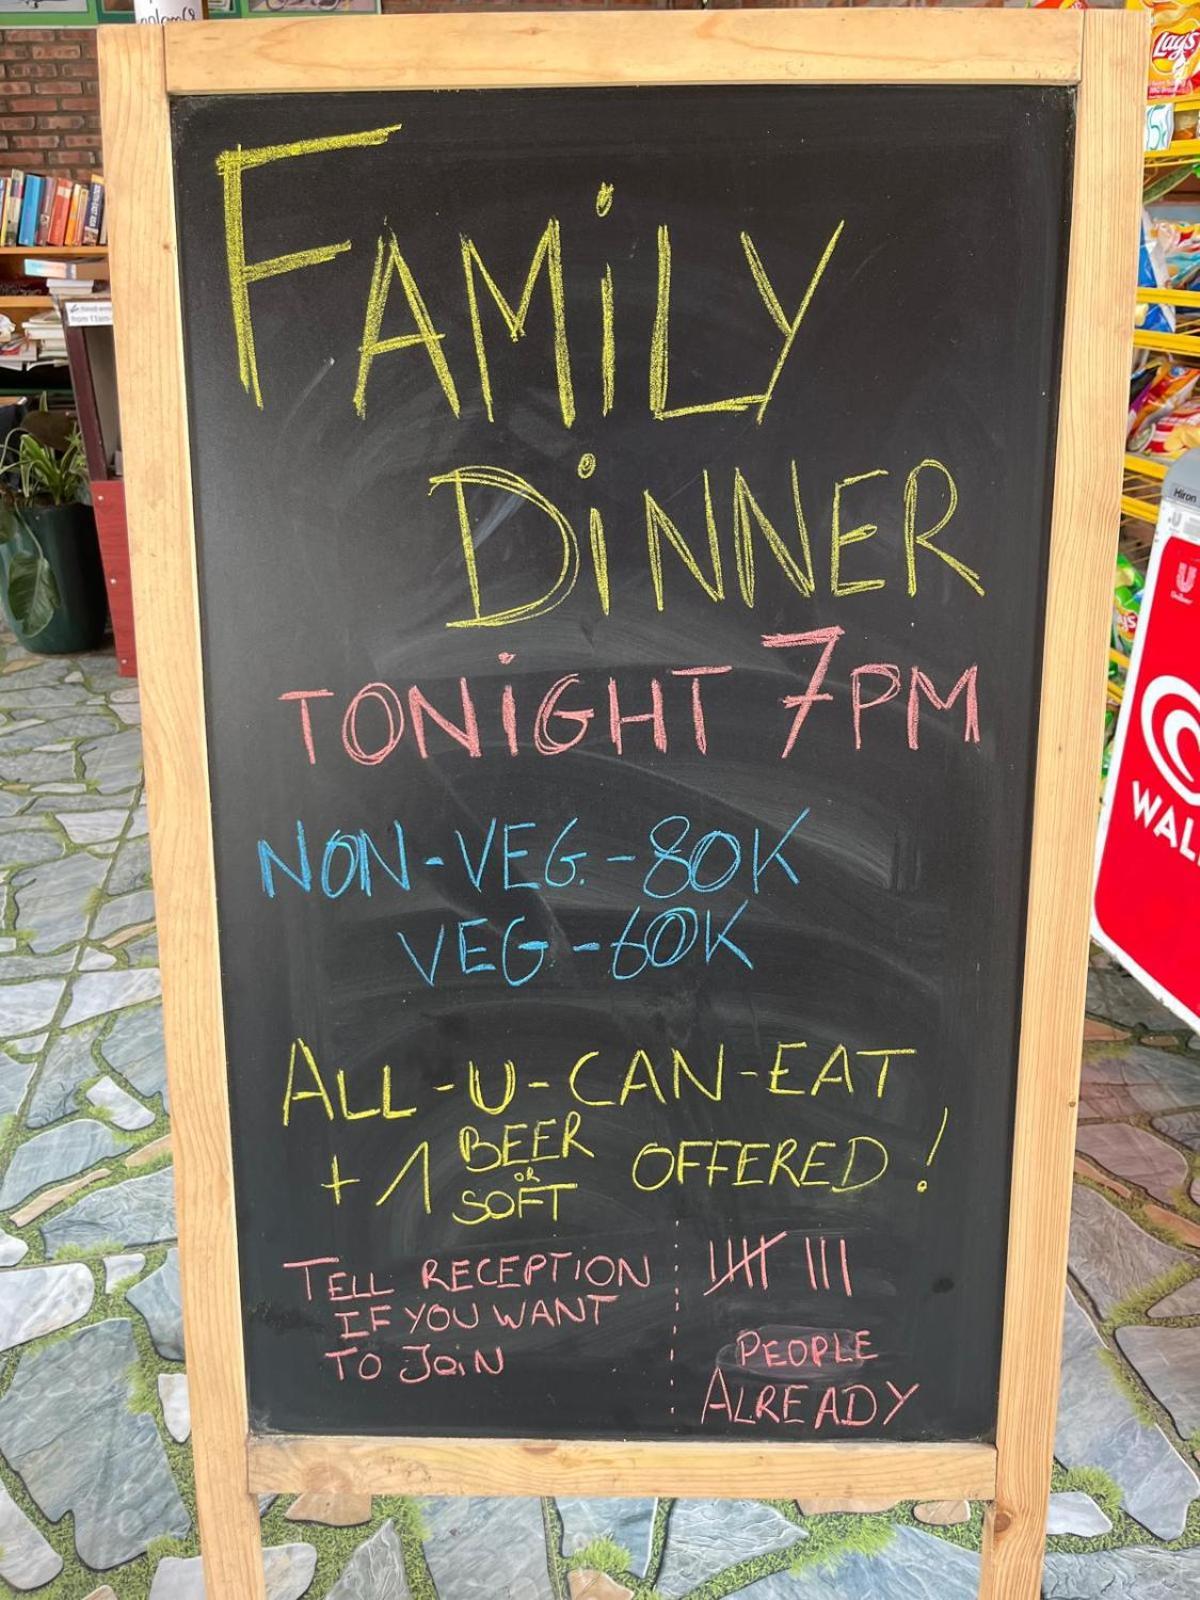 FAMiLY
DiNNER
TONiGHT 7PM
NON-VEG. - 80K
VEG - 60K
ALL-U-CAN-EAT
+ 1 BEER OR SOFT OFFERED!
TELL RECEPTiON
IF YOU WANT
TO JOiN
PEOPLE
ALREADY
Lay's
Miron
Unilever
WAL
from 11am